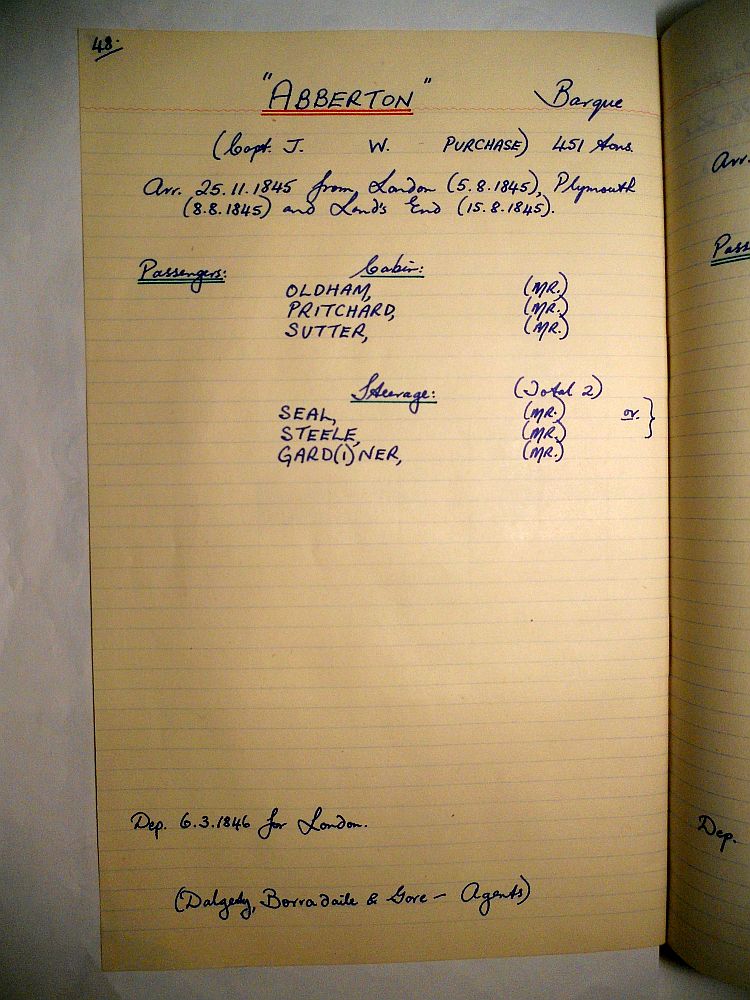 48.
"ABBERTON" Barque
(Capt. J. W. PURCHASE) 451 tons.
Arr. 25.11.1845 from London (5.8.1845), Plymouth
(8.8.1845) and Land's End (15.8.1845).
Passengers: Cabin:
OLDHAM, (MR.)
PRITCHARD, (MR.)
SUTTER, (MR.)
Steerage: (Total 2)
SEAL, (MR.) or. }
STEELE, (MR.)
GARD(I)NER, (MR.)
Dep. 6.3.1846 for London.
(Dalgety, Borradaile & Gore - Agents)
Arr.
Pass
Dep.